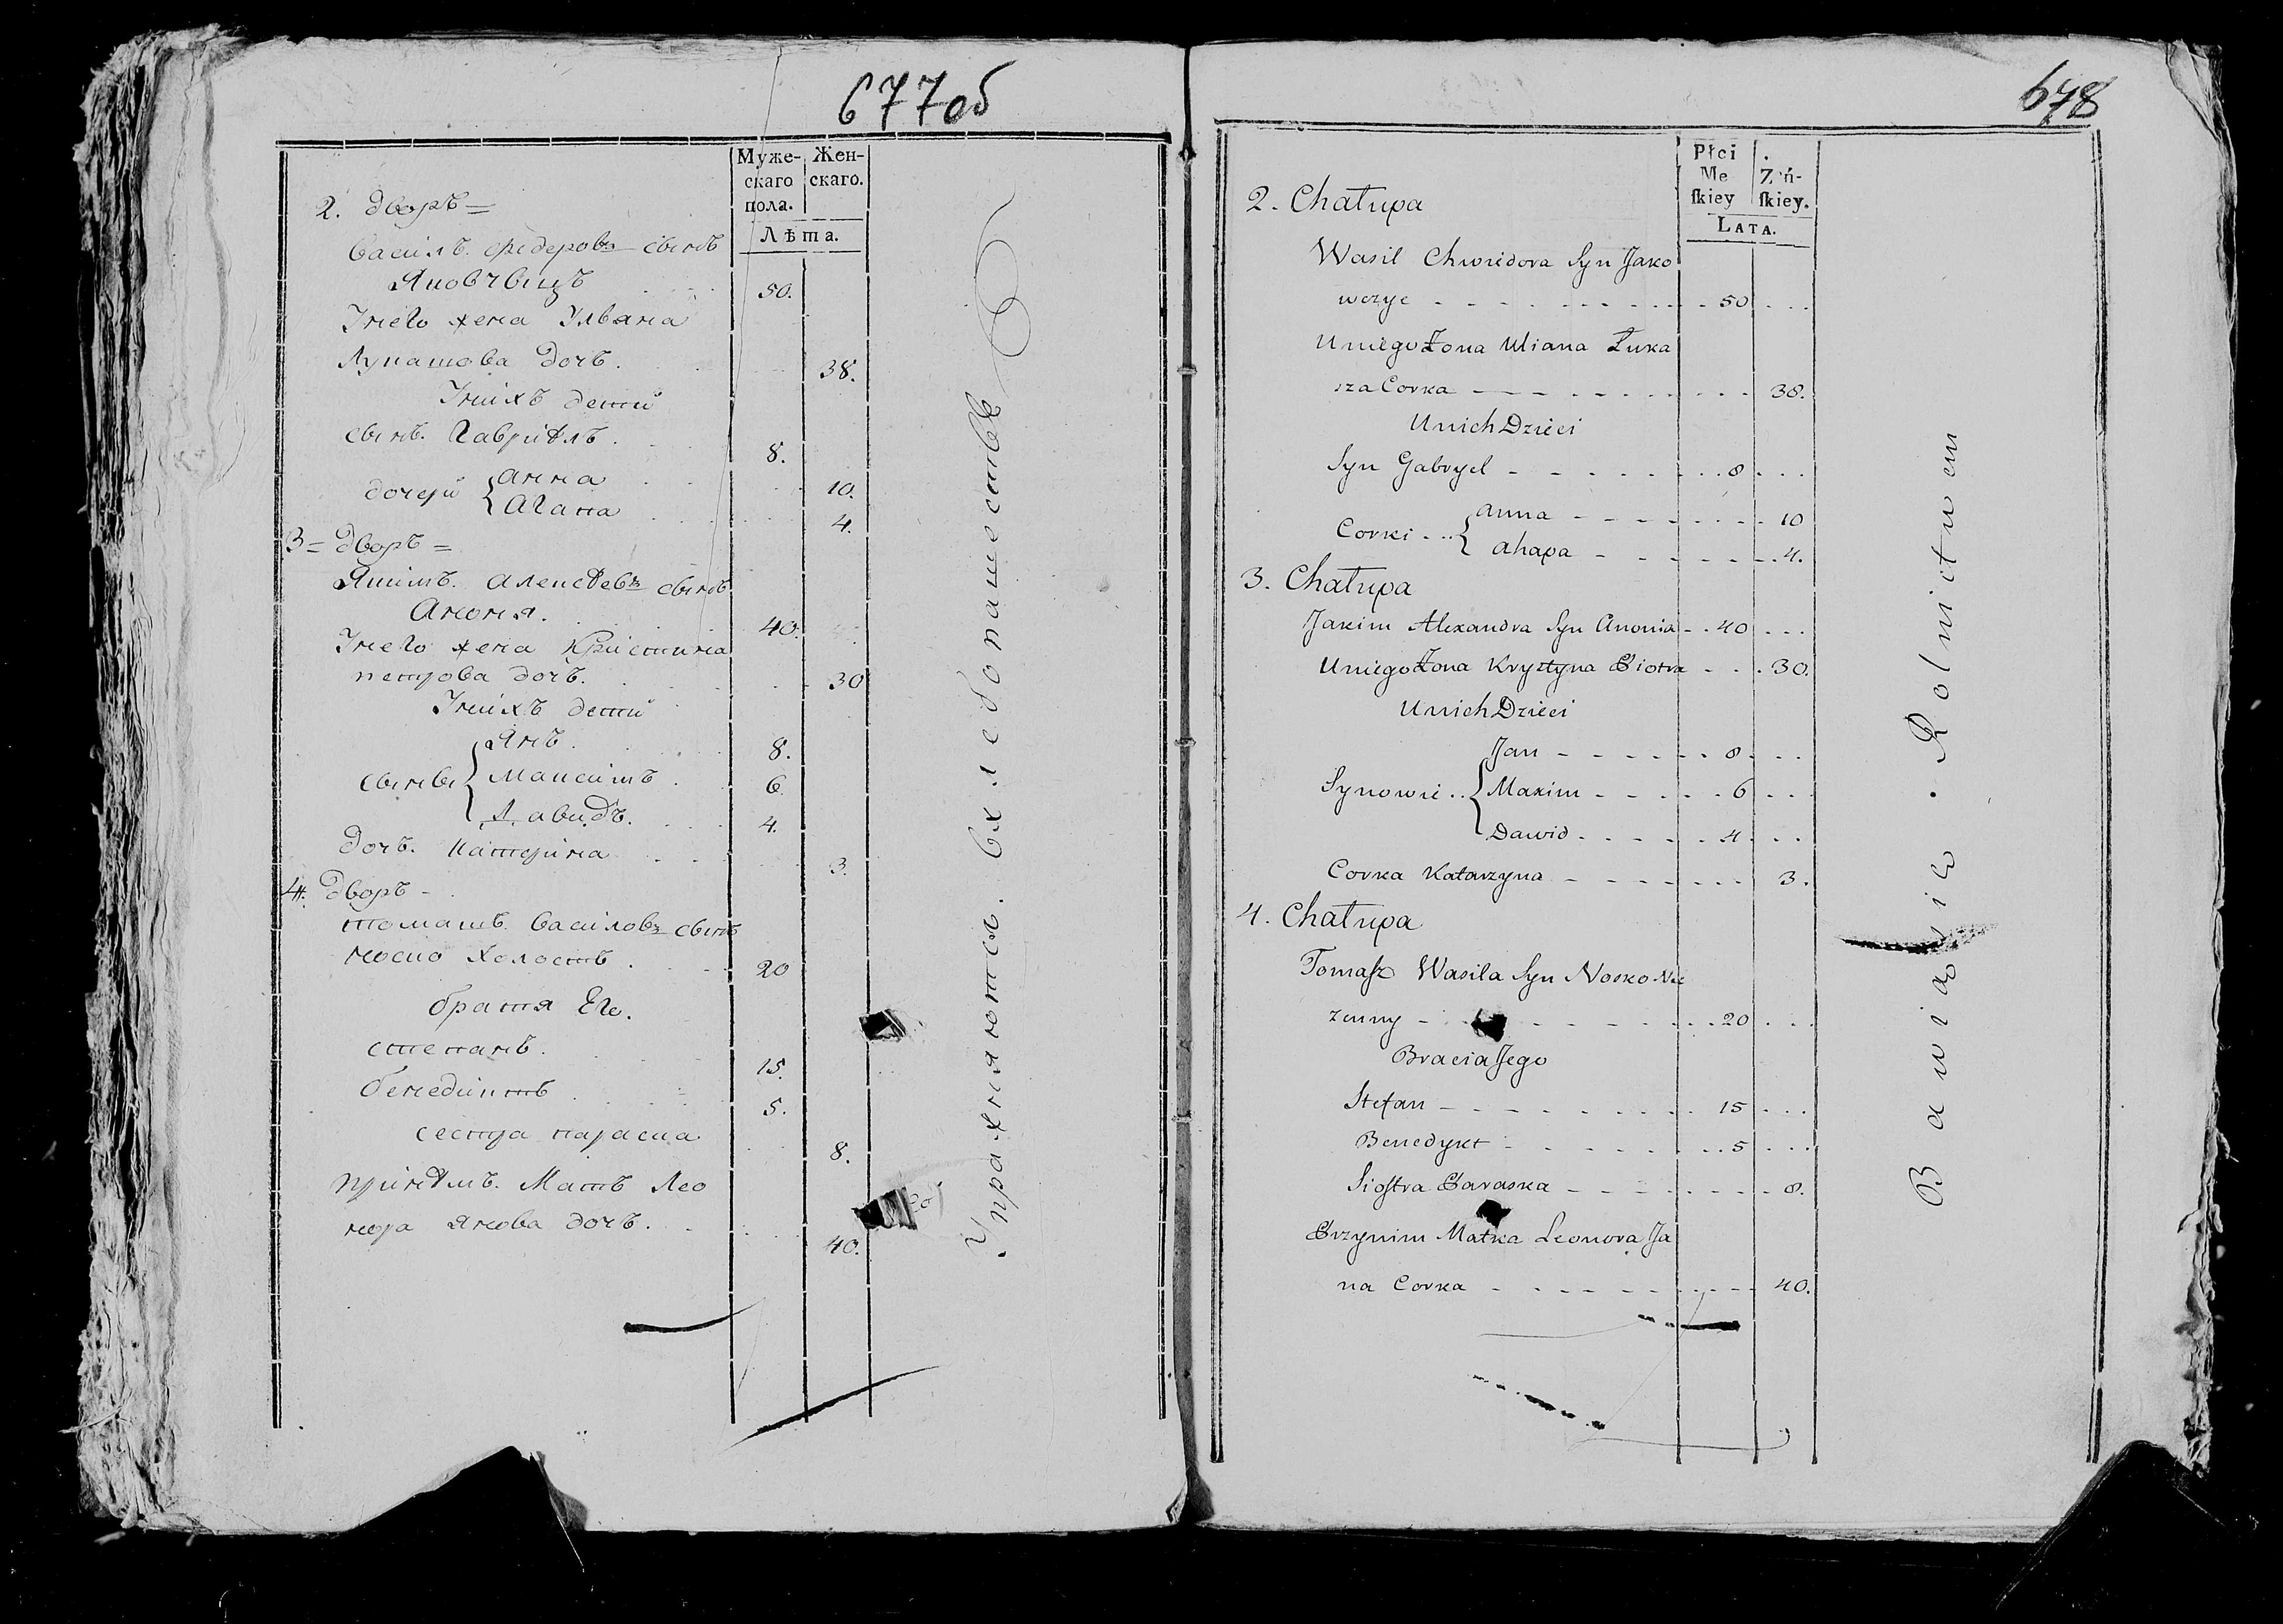 677об
Муже-
скаго
пола.
Жен-
скаго.
Лѣта.
2. дворъ =
василъ. федеровъ сынъ
Яковчицъ 50.
Унего жена Улвяна
Лукашова дочъ. 38.
Унихъ дети
сынъ. Гаврiѣлъ. 8.
дочери { анна 10.
Агапа 4.
3 = дворъ =
Якимъ. алексѣевъ сынъ
Анонiя. 40.
Унего жена Кристина
петрова дочъ. 30
Унихъ дети
Янъ. 8.
сынъвi { Максимъ. 6
Давидъ. 4.
дочъ. катерина 3.
4. дворъ -
томашъ. василовъ сынъ
носко холостъ. 20
братiя Его.
степанъ. 15.
бенедиктъ 5.
сестра параска 8.
прiнѣмъ. Матъ Лео
нора янова дочъ. 40.
Упражняются. вхлебопашестве
678
Płci
Me
skiey
Zeń-
skiey.
LATA.
2. Chałupa
Wasil Chwiedora Syn Jako
wczyc 50
Uniego Żona Uliana Łuka
sza Corka 38.
Unich Dzieci
Syn Gabryel 8
Corki { anna 10
ahapa 4.
3. Chałupa
Jakim Alexandra Syn Anonia 40
Uniego Żona Krystyna Piotra 30.
Unich Dzieci
Jan 8
Synowie { Maxim 6
Dawid 4
Corka Katarzyna 3.
4. Chałupa
Tomasz Wasila Syn Nosko Nie
żenny 20
Bracia Jego
Stefan 15
Benedykt 5
Siostra Paraska 8.
Przynim Matka Leonora Ja
na Corka 40.
Bawią się. Rolnictwem